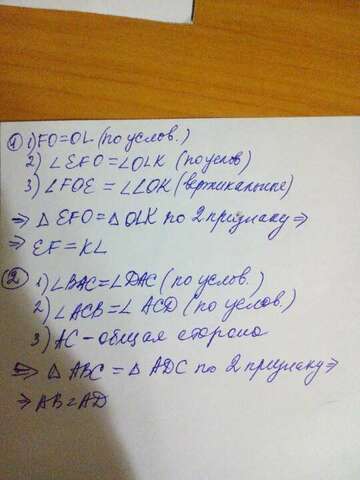 ① 1) FO=OL (по услов.)
2) ∠EFO=∠OLK (по услов)
3) ∠FOE = ∠LOK (вертикальные)
⇒ △ EFO = △ OLK по 2 признаку ⇒
⇒ EF = KL
② 1) ∠BAC=∠DAC (по услов.)
2) ∠ACB=∠ ACD (по услов)
3) AC - общая сторона
⇒ △ ABC = △ ADC по 2 признаку ⇒
⇒ AB=AD